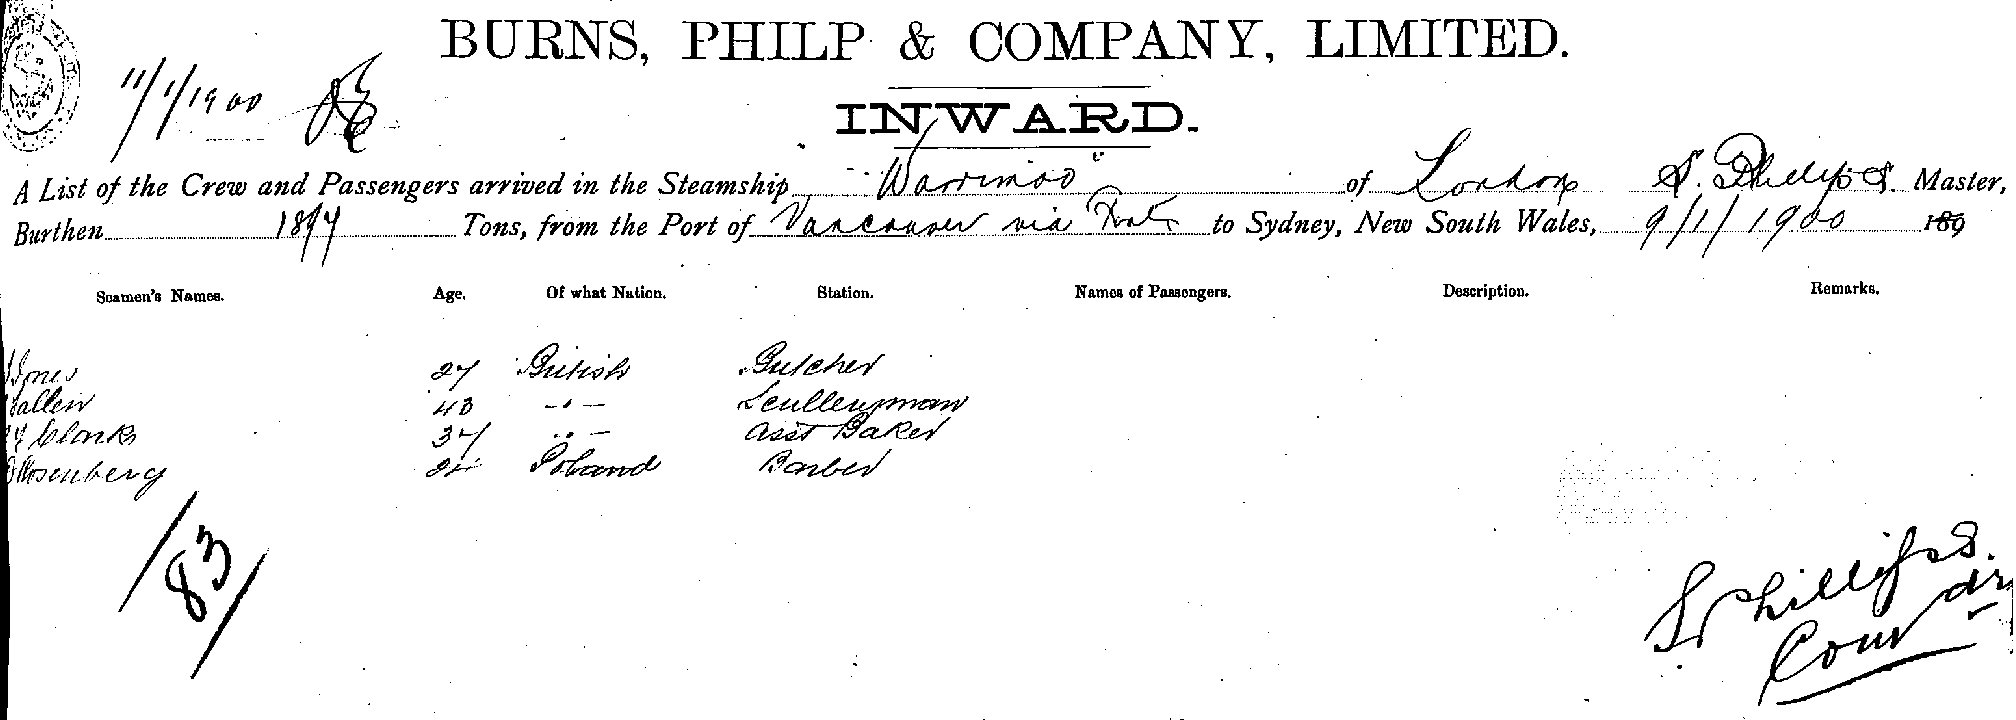 BURNS, PHILP & COMPANY, LIMITED.
11/1/1900
INWARD.
A List of the Crew and Passengers arrived in the Steamship "Warrimoo" of London S. Phillips Master,
Burthen 1897 Tons, from the Port of Vancouver via Ports to Sydney, New South Wales, 9/1/1900 189
Seamen's Names. Age. Of what Nation. Station. Names of Passengers. Description. Remarks.
Jones 27 British Butcher
43 -"- Sculleryman
Clark 37 "- Asst Baker
Rosenberg 24 Poland Barber
/83/
S Phillips
Com